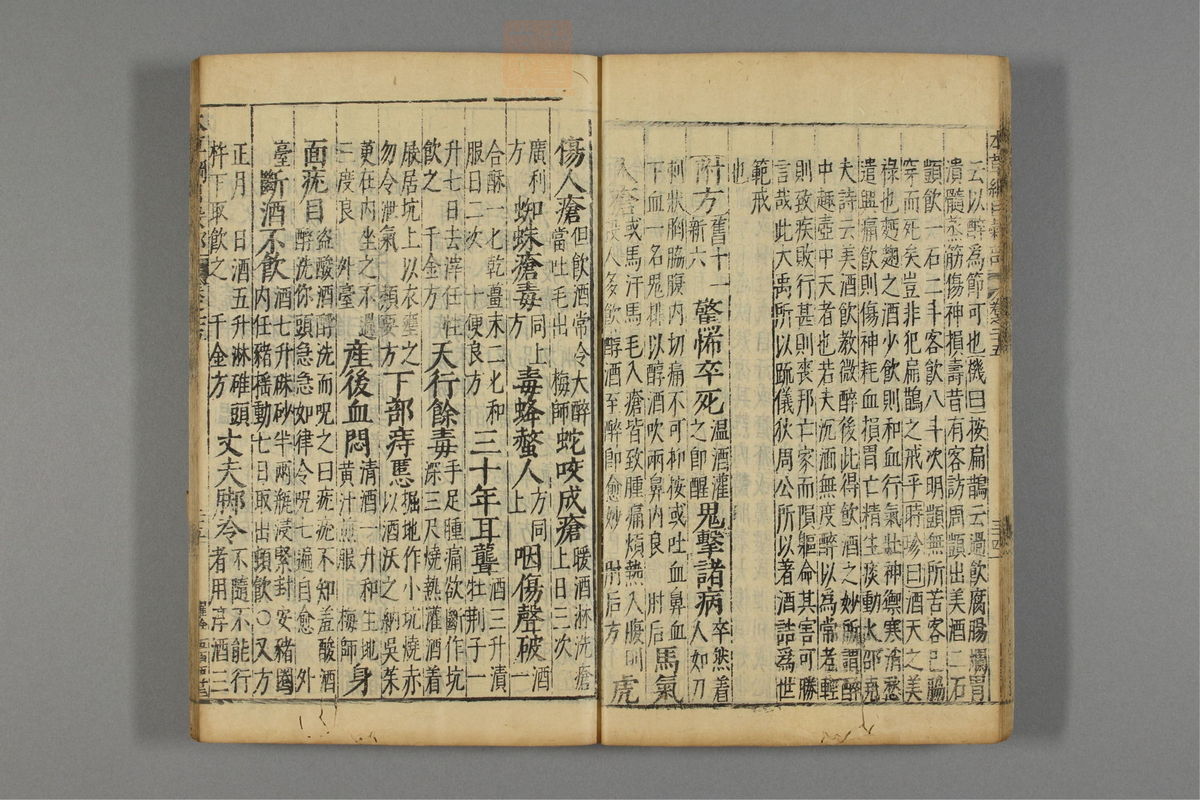 云以醉爲節可也機曰按扁鵲云過飲腐腸爛胃
潰髓蒸筋傷神損壽昔有客訪周顗出美酒二石
顗飲一石二斗客飲八斗次明顗無所苦客已脇
穿而死矣豈非犯扁鵲之戒乎時珍曰酒天之美
祿也麪麴之酒少飲則和血行氣壯神禦寒消愁
遣興痛飲則傷神耗血損胃亡精生痰動火邵堯
夫詩云美酒飲教微醉後此得飲酒之妙所謂醉
中趣壺中天者也若夫沉湎無度醉以爲常者輕
則致疾敗行甚則喪邦亡家而隕軀命其害可勝
言哉此大禹所以疏儀狄周公所以著酒誥爲世
範戒
也
附方舊十一新六 驚怖卒死溫酒灌之即醒 鬼擊諸病卒然着人如刀
刺狀胸脇腹內切痛不可抑按或吐血鼻血
下血一名鬼排以醇酒吹兩鼻內良 肘后 馬氣
入瘡或馬汗馬毛入瘡皆致腫痛煩熱入腹則
殺人多飲醇酒至醉即愈妙 肘后方 虎
傷人瘡但飲酒常令大醉當吐毛出 梅師 蛇咬成瘡暖酒淋洗瘡上日三次
廣利方 蜘蛛瘡毒同上方 毒蜂螫人方同上 咽傷聲破酒一
合酥一匕乾薑末二匕和
服日二次 十便良方 三十年耳聾酒三升漬牡荆子一
升七日去滓任性飲之 千金方 天行餘毒手足腫痛欲斷作坑
深三尺燒熱灌酒着
屐居坑上以衣壅之
勿令泄氣 類要方 下部痔䘌掘地作小坑燒赤
以酒沃之納吳茱
萸在內坐之不過
三度良 外臺 產後血悶清酒一升和生地黃汁煎服 梅師 身
面疣目盜酸酒酻洗而呪之曰疣疣不知羞酸酒
酻洗你頭急急如律令呪七遍自愈 外
臺 斷酒不飲酒七升硃砂半兩瓶浸緊封安豬圈
內任豬搖動七日取出頓飲〇又方
正月一日酒五升淋碓頭
杵下取飲之 千金方 丈夫脚冷不隨不能行
者用淳酒三